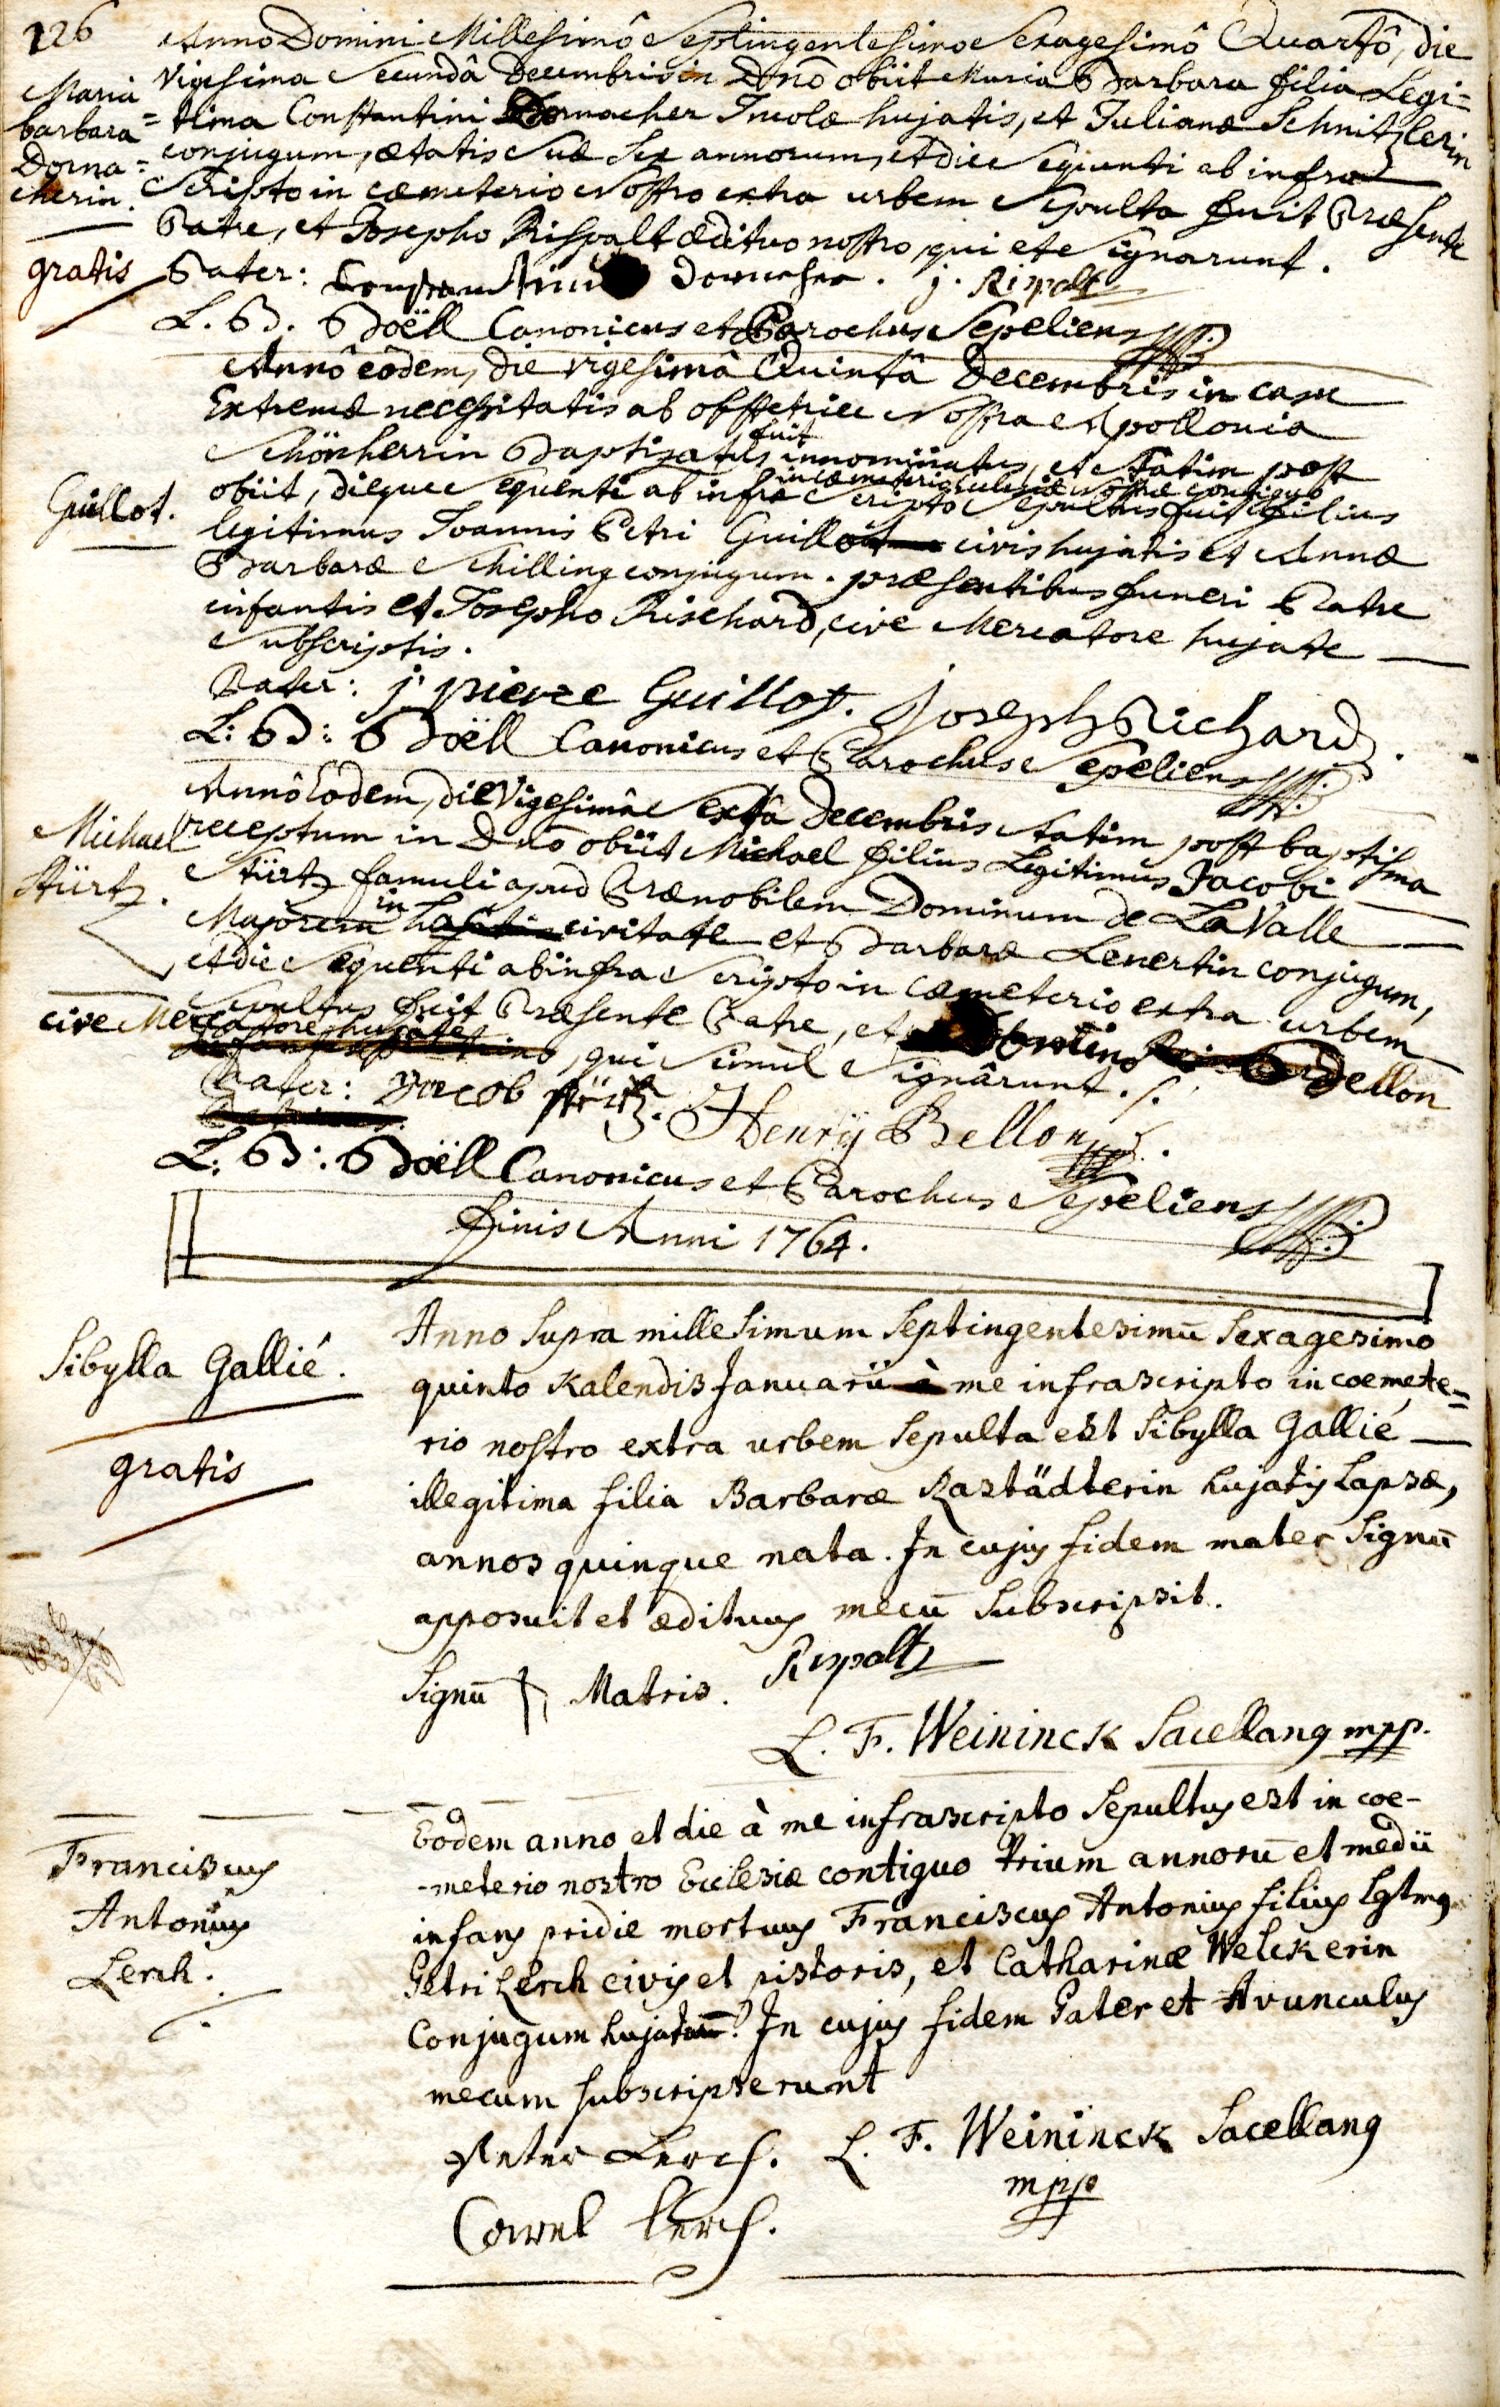 126
Anno Domini Millesimô Septingentesimo Sexagesimô Quartô, die
Maria
barbara
Dorna=
cherin.
gratis
Vigesima Secundâ Decembris in Dnō obiit Maria Barbara filia Legi=
tima Constantini Dornacher Incolæ hujatis, et Julianæ Schnitzlerin
conjugum, ætatis suæ sex annorum, et die sequenti ab infra
scripto in cæmeterio nostro extra urbem sepulta fuit Præsente
Patre, et Josepho Rispalt ædituo nostro, qui et signarunt.
Pater: Dornacher. J. Rispalt
L. B. Boëll Canonicus et Parochus Sepeliens
Guillot.
Annô eôdem, die vigesimâ Quintâ Decembris in casu
Extremæ necessitatis ab obstetrice nostra Apollonia
Schönherrin Baptizatus fuit innominatus, et statim post
obiit, dieque sequenti ab infra scripto in cæmeterio ecclesiæ nostræ contiguo sepultus fuit filius
legitimus Joannis Petri Guillot civis hujatis et Annæ
Barbaræ Schilling conjugum. præsentibus funeri Patre
infantis et Josepho Rischard, cive Mercatore hujate
subscriptis.
Pater: j. pierre Guillot. Joseph Richard.
L: B: Boëll Canonicus et Parochus Sepeliens
Michael
Stürtz.
Annô Eodem, die Vigesimâ Sextâ Decembris statim post baptisma
receptum in Dnō obiit Michael filius Legitimus Jacobi
Stürtz famuli apud Prænobilem Dominum de La Valle
Majorem in hac civitate et Barbaræ Lenertin conjugum,
et die sequenti ab infra scripto in cæmeterio extra urbem
sepultus fuit Præsente Patre, et Bellon
cive Mercatore hujate, qui simul signârunt.
Pater: Jacob Stürtz. Henrÿ Bellon.
L: B: Boëll Canonicus et Parochus Sepeliens
finis Anni 1764.
Sibylla Gallié.
gratis
Anno supra millesimum septingentesimū sexagesimo
quinto Kalendis Januarii à me infrascripto in coemete=
rio nostro extra urbem sepulta est Sibylla Gallié
illegitima filia Barbaræ Rastädterin hujatis lapsæ,
annos quinque nata. In cujus fidem mater signū
apposuit et ædituus mecū subscripsit.
Signū Matris. Rispalt
L. F. Weininck Sacellanq mpp.
Franciscus
Antonius
Lerch.
Eodem anno et die à me infrascripto sepultus est in coe-
-meterio nostro Ecclesiæ contiguo trium annorū et medii
infans pridie mortuus Franciscus Antonius filius lgtmq
Petri Lerch civis et pistoris, et Catharinæ Welckerin
Conjugum hujatum. In cujus fidem Pater et Avunculus
mecum subscripserunt
Peter Lerch. L. F. Weininck Sacellanq
mpp
Lerch.